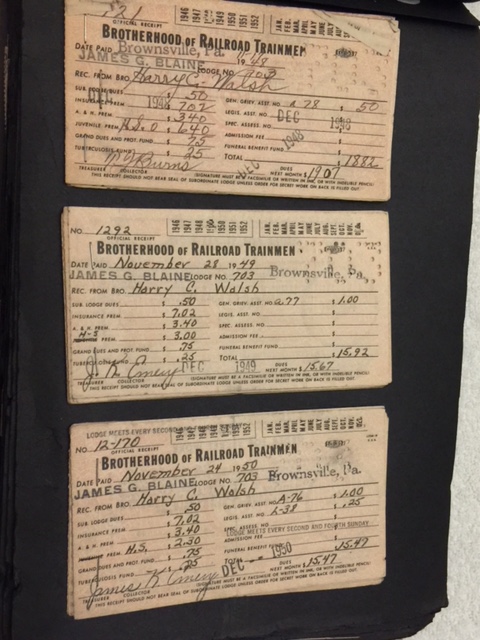 1946 1947 1948 1949 1950 1951 1952
JAN. FEB. MAR. APRIL MAY JUNE JULY
OFFICIAL RECEIPT
BROTHERHOOD OF RAILROAD TRAINMEN
DATE PAID Brownsville, Pa.
JAMES G. BLAINE LODGE NO. 703
REC. FROM BRO. Harry C. Walsh
SUB. LODGE DUES $ .50 GEN. GRIEV. ASST. NO. A 78 $ .50
INSURANCE PREM. 7.02 LEGIS. ASST. NO. DEC 1948
A. & H. PREM. 3.40 SPEC. ASSESS. NO.
JUVENILE PREM. H.S.O 6.40 ADMISSION FEE
GRAND DUES AND PROT. FUND .75 FUNERAL BENEFIT FUND
TUBERCULOSIS FUND .25 TOTAL 18.82
DUES NEXT MONTH $ 19.07
TREASURER COLLECTOR (SIGNATURE MUST BE A FACSIMILE OR WRITTEN IN INK, OR WITH INDELIBLE PENCIL)
THIS RECEIPT SHOULD NOT BEAR SEAL OF SUBORDINATE LODGE UNLESS ORDER FOR SECRET WORK ON BACK IS FILLED OUT.
1946 1947 1948 1949 1950 1951 1952
JAN. FEB. MAR. APRIL MAY JUNE JULY AUG. SEPT. OCT. NOV.
NO. 1292
OFFICIAL RECEIPT
BROTHERHOOD OF RAILROAD TRAINMEN
DATE PAID November 28 1949
JAMES G. BLAINE LODGE NO. 703 Brownsville, Pa.
REC. FROM BRO. Harry C. Walsh
SUB. LODGE DUES $ .50 GEN. GRIEV. ASST. NO. A 77 $ 1.00
INSURANCE PREM. 7.02 LEGIS. ASST. NO.
A. & H. PREM. 3.40 SPEC. ASSESS. NO.
H-S PREM. 3.00 ADMISSION FEE
GRAND DUES AND PROT. FUND .75 FUNERAL BENEFIT FUND
TUBERCULOSIS FUND .25 TOTAL 15.92
DEC 1949 DUES NEXT MONTH $ 15.67
TREASURER COLLECTOR (SIGNATURE MUST BE A FACSIMILE OR WRITTEN IN INK, OR WITH INDELIBLE PENCIL)
THIS RECEIPT SHOULD NOT BEAR SEAL OF SUBORDINATE LODGE UNLESS ORDER FOR SECRET WORK ON BACK IS FILLED OUT.
LODGE MEETS EVERY SECOND
1946 1947 1948 1949 1950 1951 1952
JAN. FEB. MAR. APRIL MAY JUNE JULY AUG. SEPT. OCT. NOV. DEC.
NO. 12-170
OFFICIAL RECEIPT
BROTHERHOOD OF RAILROAD TRAINMEN
DATE PAID November 24 1950
JAMES G. BLAINE LODGE NO. 703 Brownsville, Pa.
REC. FROM BRO. Harry C. Walsh
SUB LODGE DUES $ .50 GEN. GRIEV. ASST. NO. A-76 $ 1.00
INSURANCE PREM. 7.02 LEGIS. ASST. NO. L-38 .25
A. & H. PREM. 3.40 SPEC. ASSESS. NO.
LODGE MEETS EVERY SECOND AND FOURTH SUNDAY
PREM. H.S. 2.30 ADMISSION FEE
GRAND DUES AND PROT. FUND .75 FUNERAL BENEFIT
TUBERCULOSIS FUND .25 TOTAL 15.47
DEC 1950 DUES NEXT MONTH $ 15.47
James K Emery
TREASURER COLLECTOR (SIGNATURE MUST BE A FACSIMILE OR WRITTEN IN INK, OR WITH INDELIBLE PENCIL)
THIS RECEIPT SHOULD NOT BEAR SEAL OF SUBORDINATE LODGE UNLESS ORDER FOR SECRET WORK ON BACK IS FILLED OUT.